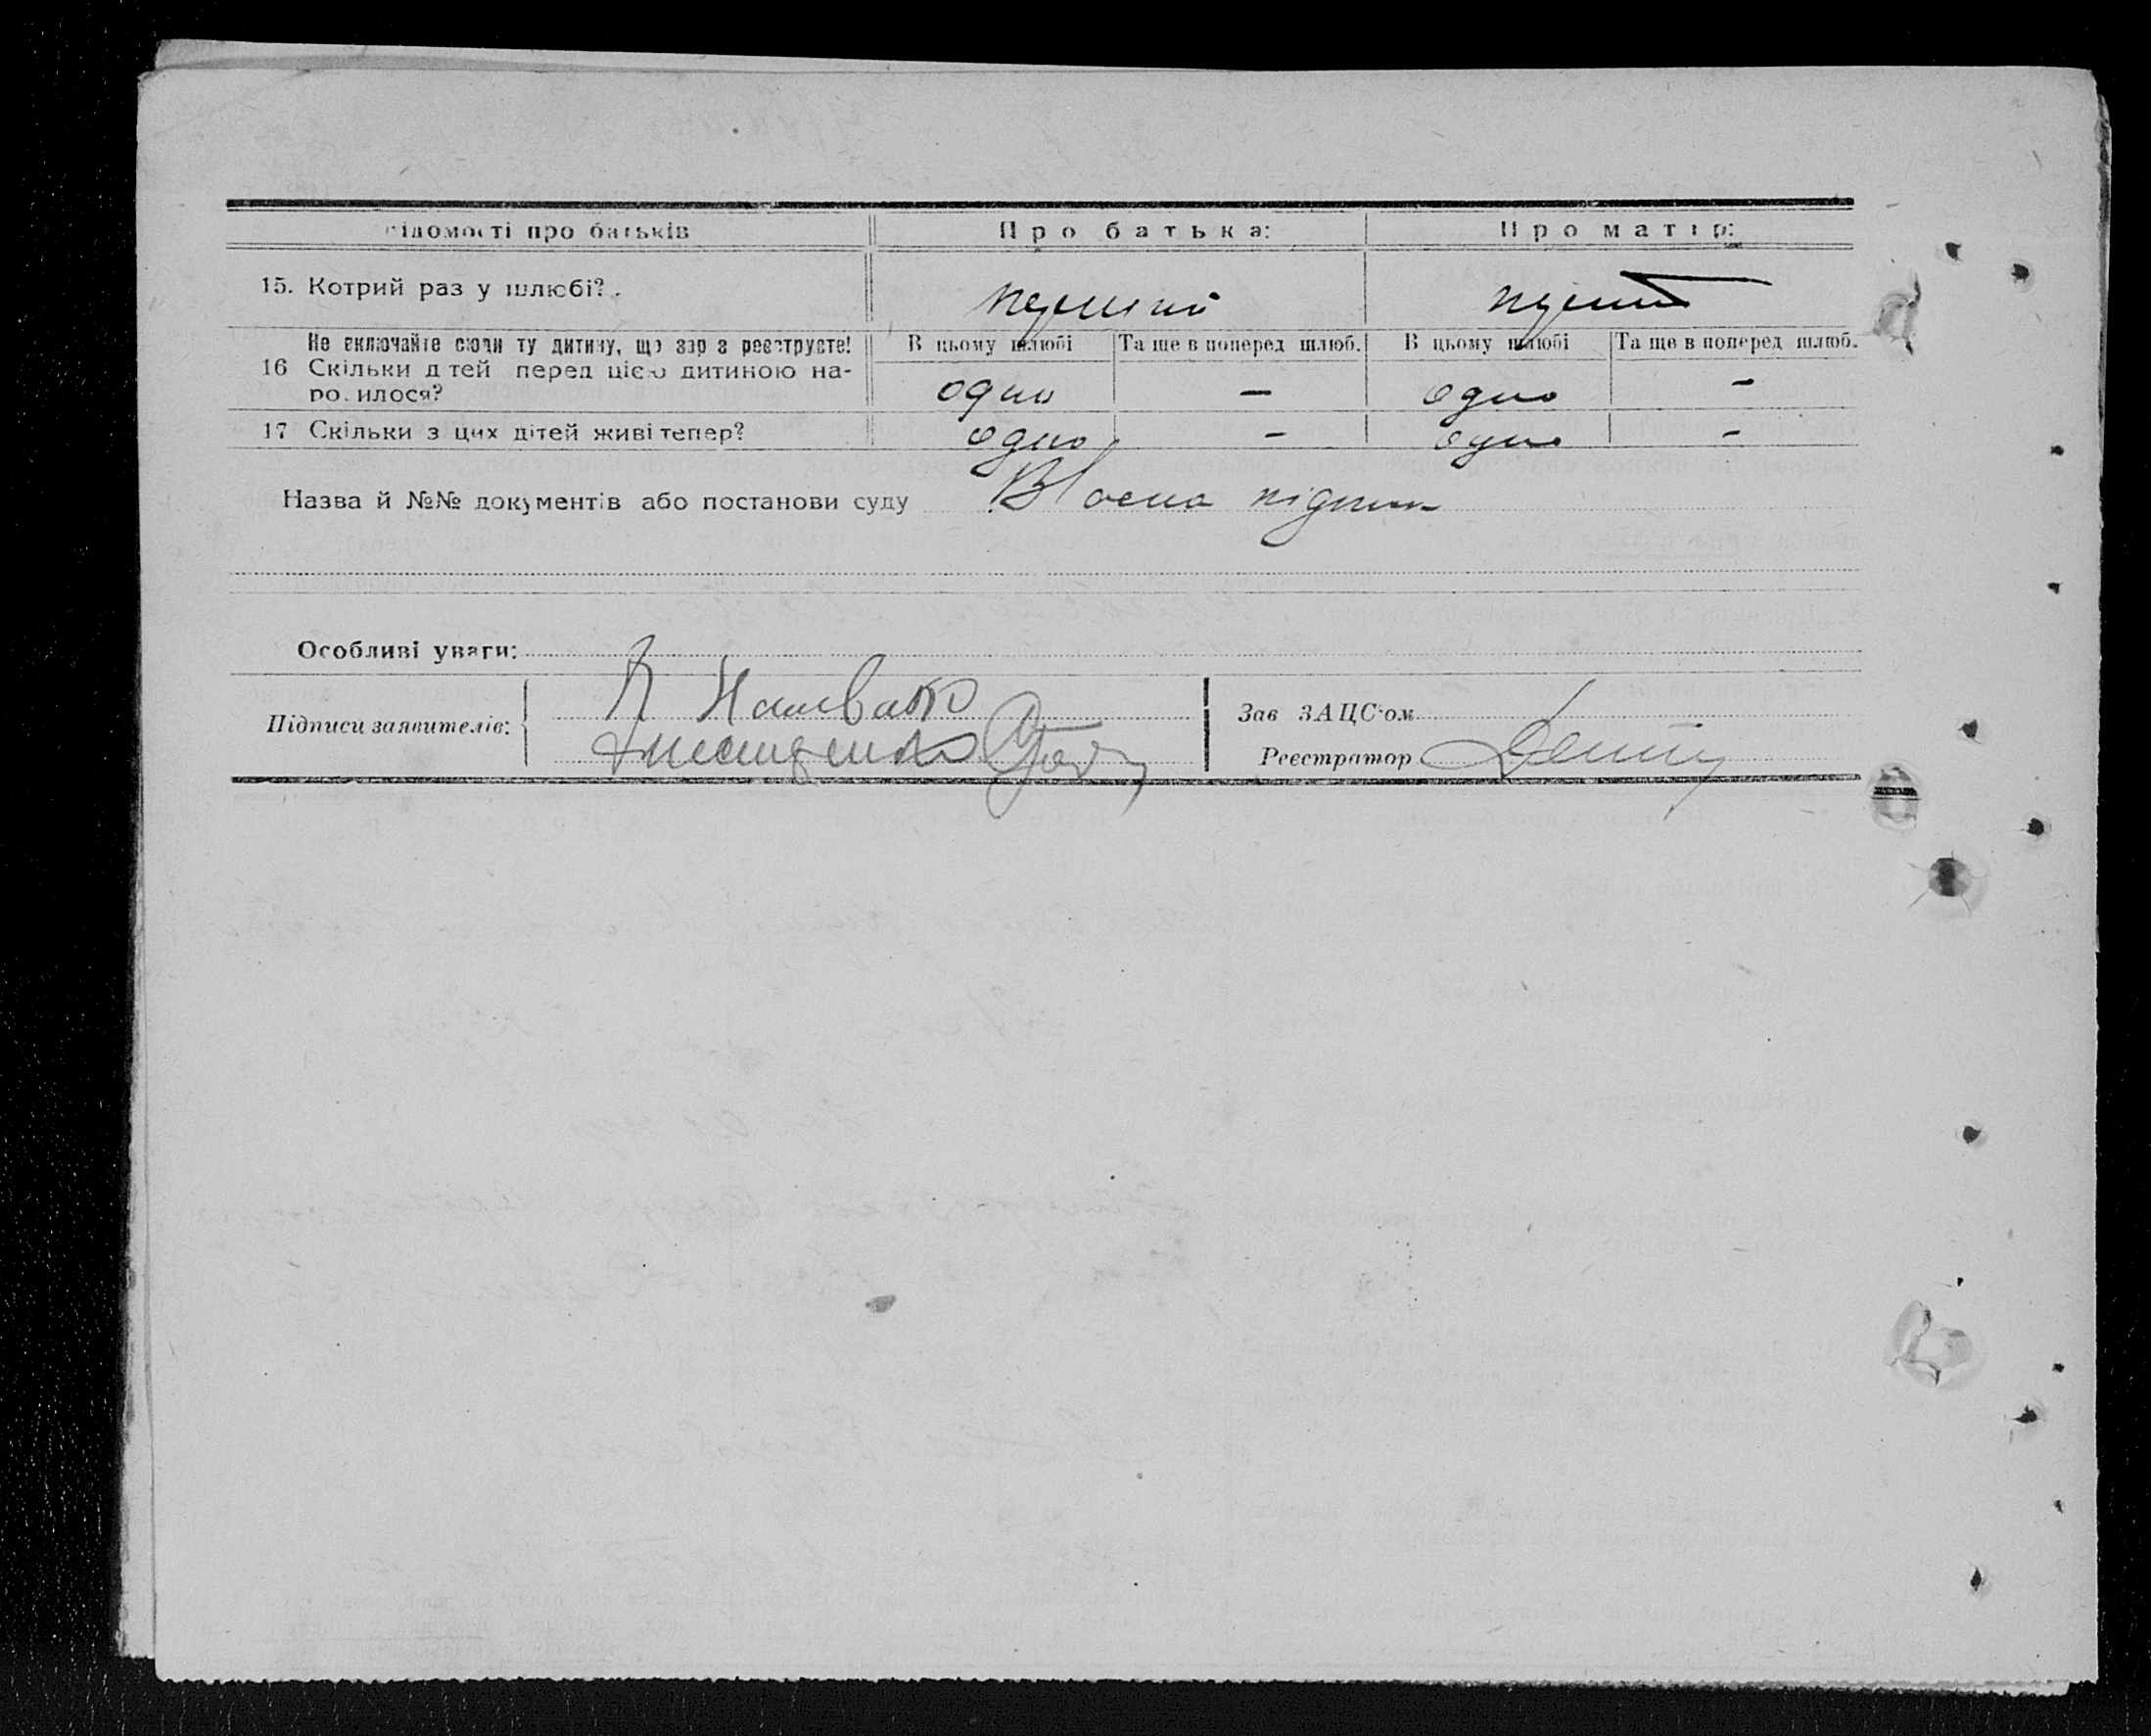 відомості про батьків Про батька: Про матір:
15. Котрий раз у шлюбі?
Не включайте сюди ту дитину, що зараз реєструєте! В цьому шлюбі Та ще в поперед шлюб. В цьому шлюбі Та ще в поперед шлюб.
16 Скільки дітей перед цією дитиною на-
родилося? одно - одно -
17 Скільки з цих дітей живі тепер? одно - одно -
Назва й №№ документів або постанови суду Власна підпис
Особливі уваги:
Підписи заявителів:
Зав ЗАЦС'ом
Реєстратор